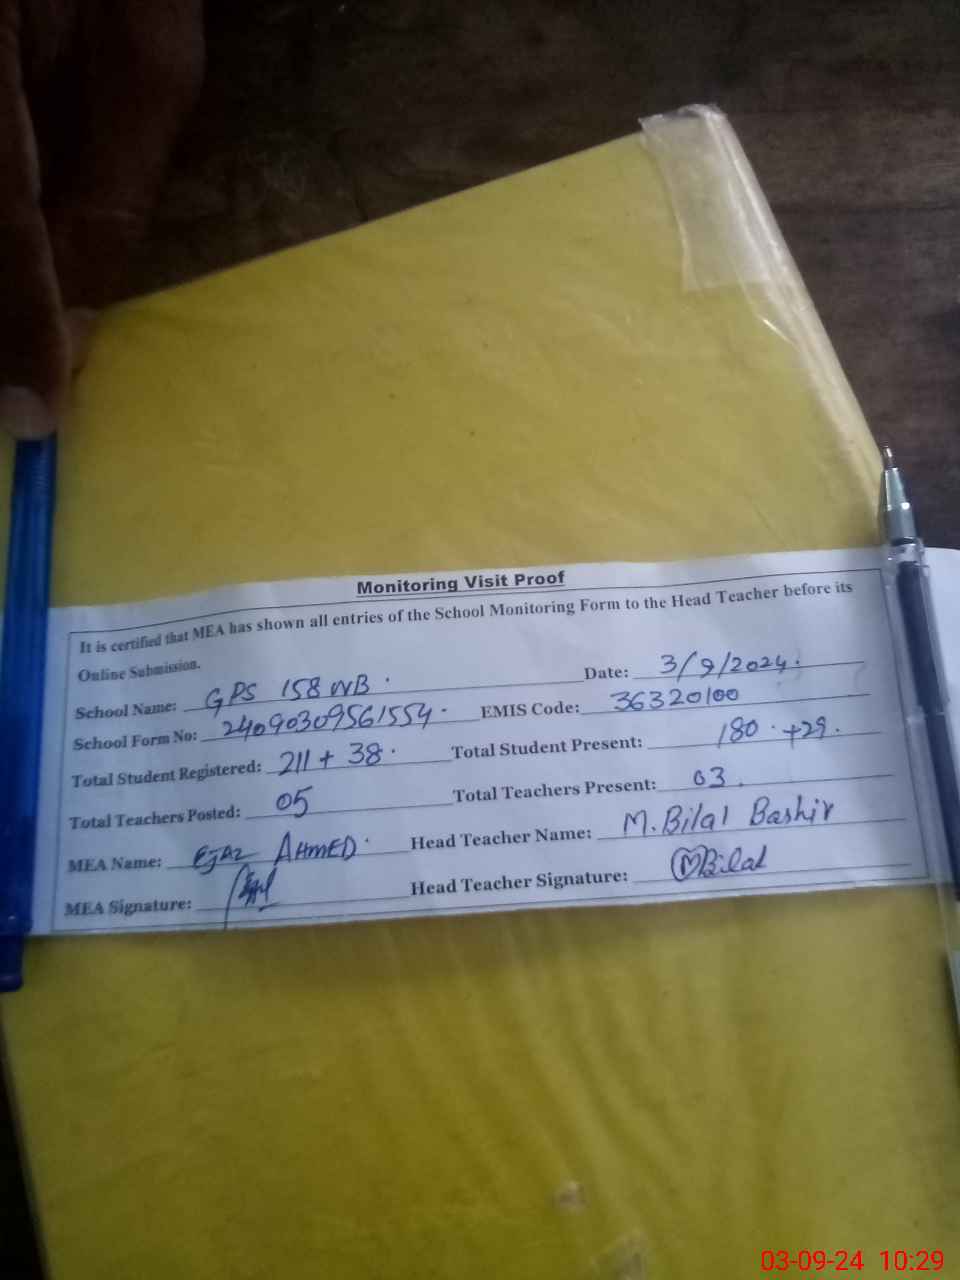 Monitoring Visit Proof
It is certified that MEA has shown all entries of the School Monitoring Form to the Head Teacher before its
Online Submission.
Date: 3/9/2024.
School Name: GPS 158 WB.
School Form No: 24090309561554. EMIS Code: 36320100
Total Student Registered: 211 + 38. Total Student Present: 180 + 29.
Total Teachers Posted: 05 Total Teachers Present: 03.
MEA Name: EJAZ AHMED. Head Teacher Name: M. Bilal Bashir
MEA Signature: Head Teacher Signature: MBilal
03-09-24 10:29